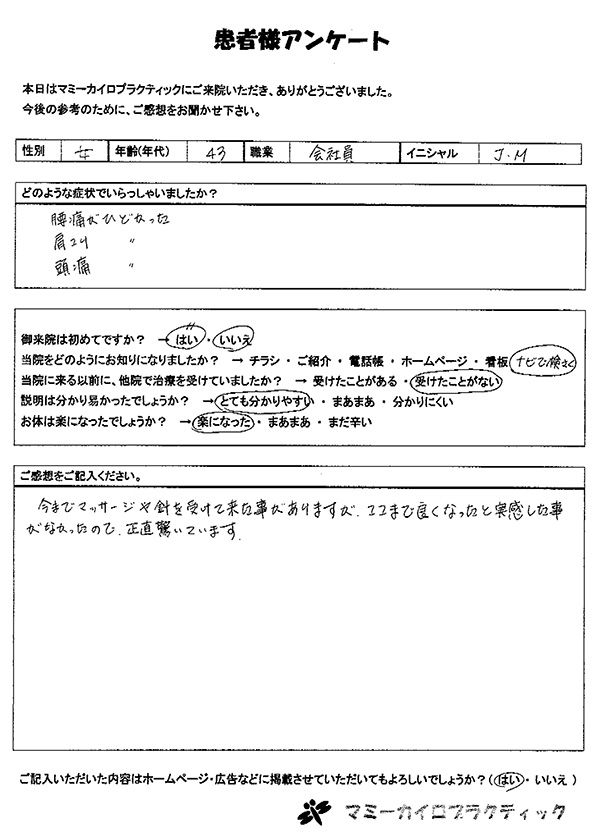 患者様アンケート
本日はマミーカイロプラクティックにご来院いただき、ありがとうございました。
今後の参考のために、ご感想をお聞かせ下さい。
性別 女 年齢(年代) 43 職業 会社員 イニシャル J.M
どのような症状でいらっしゃいましたか？
腰痛がひどかった
肩コリ 〃
頭痛 〃
御来院は初めてですか？ →はい・いいえ
当院をどのようにお知りになりましたか？ → チラシ・ご紹介・電話帳・ホームページ・看板 ナビで検さく
当院に来る以前に、他院で治療を受けていましたか？ → 受けたことがある・受けたことがない
説明は分かり易かったでしょうか？ →とても分かりやすい・まあまあ・分かりにくい
お体は楽になったでしょうか？ →楽になった・まあまあ・まだ辛い
ご感想をご記入ください。
今までマッサージや針を受けて来た事がありますが、ココまで良くなったと実感した事
がなかったので、正直驚いています。
ご記入いただいた内容はホームページ・広告などに掲載させていただいてもよろしいでしょうか？（はい・いいえ）
マミーカイロプラクティック